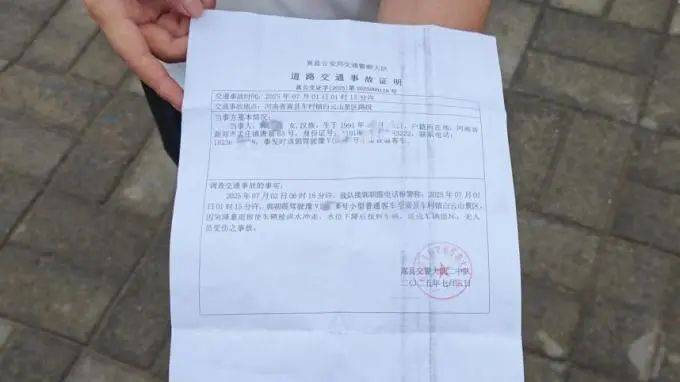 嵩县公安局交通警察大队
道路交通事故证明
嵩公交证字[2025]第
交通事故时间：2025年07月01日01时15分许
交通事故地点：河南省嵩县车村镇白云山景区路段
当事方基本情况：
当事人： 女，汉族，生于1991年 户籍所在地：河南省
新郑市孟庄镇 号，身份证号： 联系电话：
事发时该辆驾驶豫V 客车。
调查交通事故的事实：
2025年07月02日06时16分许，我队接 电话报警称：2025年07月01
日01时15分许， 驾驶豫V 号小型普通客车至嵩县车村镇白云山景区，
因突降暴雨致使车辆被洪水冲走，水位下降后找到车辆，造成车辆损坏，无人
员受伤之事故。
嵩县交警大队二中队
二〇二五年七月 日